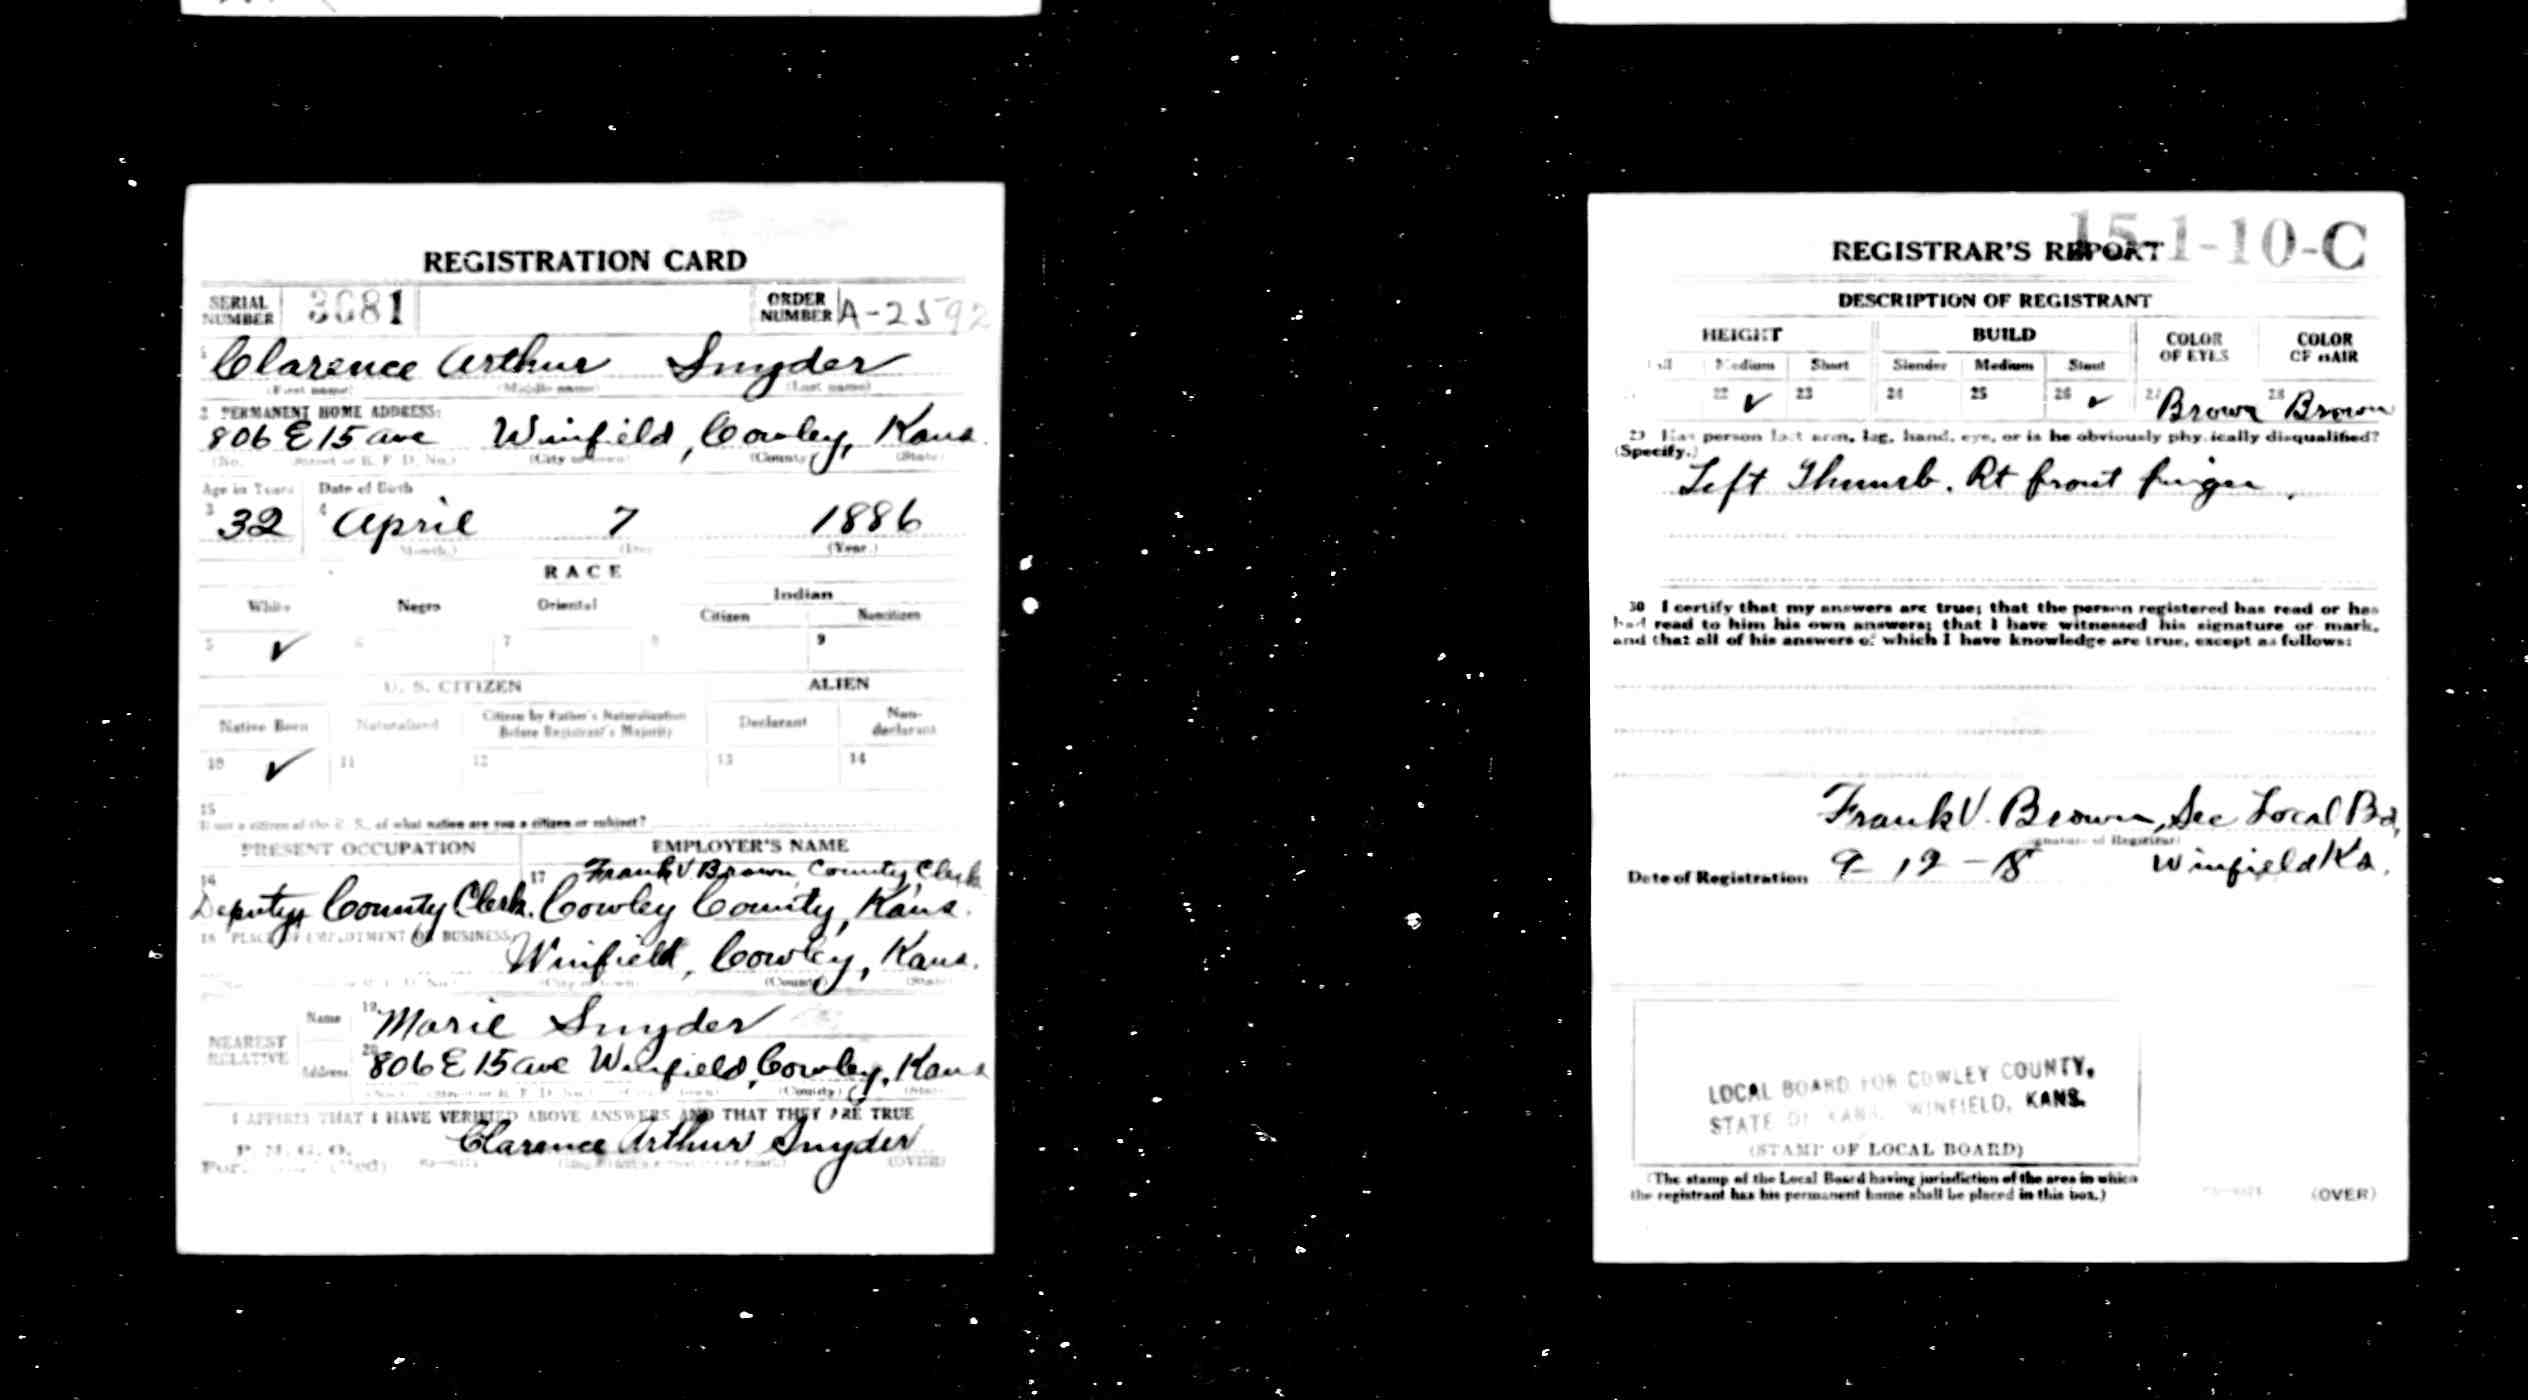 REGISTRATION CARD
SERIAL NUMBER 3681 ORDER NUMBER A-2592
1 Clarence Arthur Snyder
(First name) (Middle name) (Last name)
2 PERMANENT HOME ADDRESS:
806 E 15 ave Winfield, Cowley, Kans.
(No.) (Street or R. F. D. No.) (City or town) (County) (State)
Age in Years Date of Birth
3 32 4 April 7 1886
(Month.) (Day.) (Year.)
RACE
White Negro Oriental Indian
Citizen Noncitizen
5 ✓ 6 7 8 9
U. S. CITIZEN ALIEN
Native Born Naturalized Citizen by Father's Naturalization Before Registrant's Majority Declarant Non-declarant
10 ✓ 11 12 13 14
15
If not a citizen of the U. S., of what nation are you a citizen or subject?
PRESENT OCCUPATION EMPLOYER'S NAME
16 17 Frank V Brown County Clerk
Deputy County Clerk. Cowley County, Kans.
18 PLACE OF EMPLOYMENT OR BUSINESS:
Winfield, Cowley, Kans.
(No.) (Street or R. F. D. No.) (City or town) (County) (State)
NEAREST RELATIVE
Name 19 Marie Snyder
Address 20 806 E 15 ave Winfield, Cowley, Kans
(No.) (Street or R. F. D. No.) (City or town) (County) (State)
I AFFIRM THAT I HAVE VERIFIED ABOVE ANSWERS AND THAT THEY ARE TRUE
P. M. G. O.
Clarence Arthur Snyder
(OVER)
15-1-10-C
REGISTRAR'S REPORT
DESCRIPTION OF REGISTRANT
HEIGHT BUILD COLOR OF EYES COLOR OF HAIR
Tall Medium Short Slender Medium Stout
22 ✓ 23 24 25 26 ✓ 27 Brown 28 Brown
29 Has person lost arm, leg, hand, eye, or is he obviously physically disqualified?
(Specify.)
Left Thumb. Rt front finger.
30 I certify that my answers are true; that the person registered has read or has
had read to him his own answers; that I have witnessed his signature or mark,
and that all of his answers of which I have knowledge are true, except as follows:
Frank V. Brown, Sec Local Bd,
(Signature of Registrar)
Date of Registration 9-12-18 Winfield Ks.
LOCAL BOARD FOR COWLEY COUNTY,
STATE OF KANS. WINFIELD, KANS.
(STAMP OF LOCAL BOARD)
(The stamp of the Local Board having jurisdiction of the area in which
the registrant has his permanent home shall be placed in this box.)
(OVER)